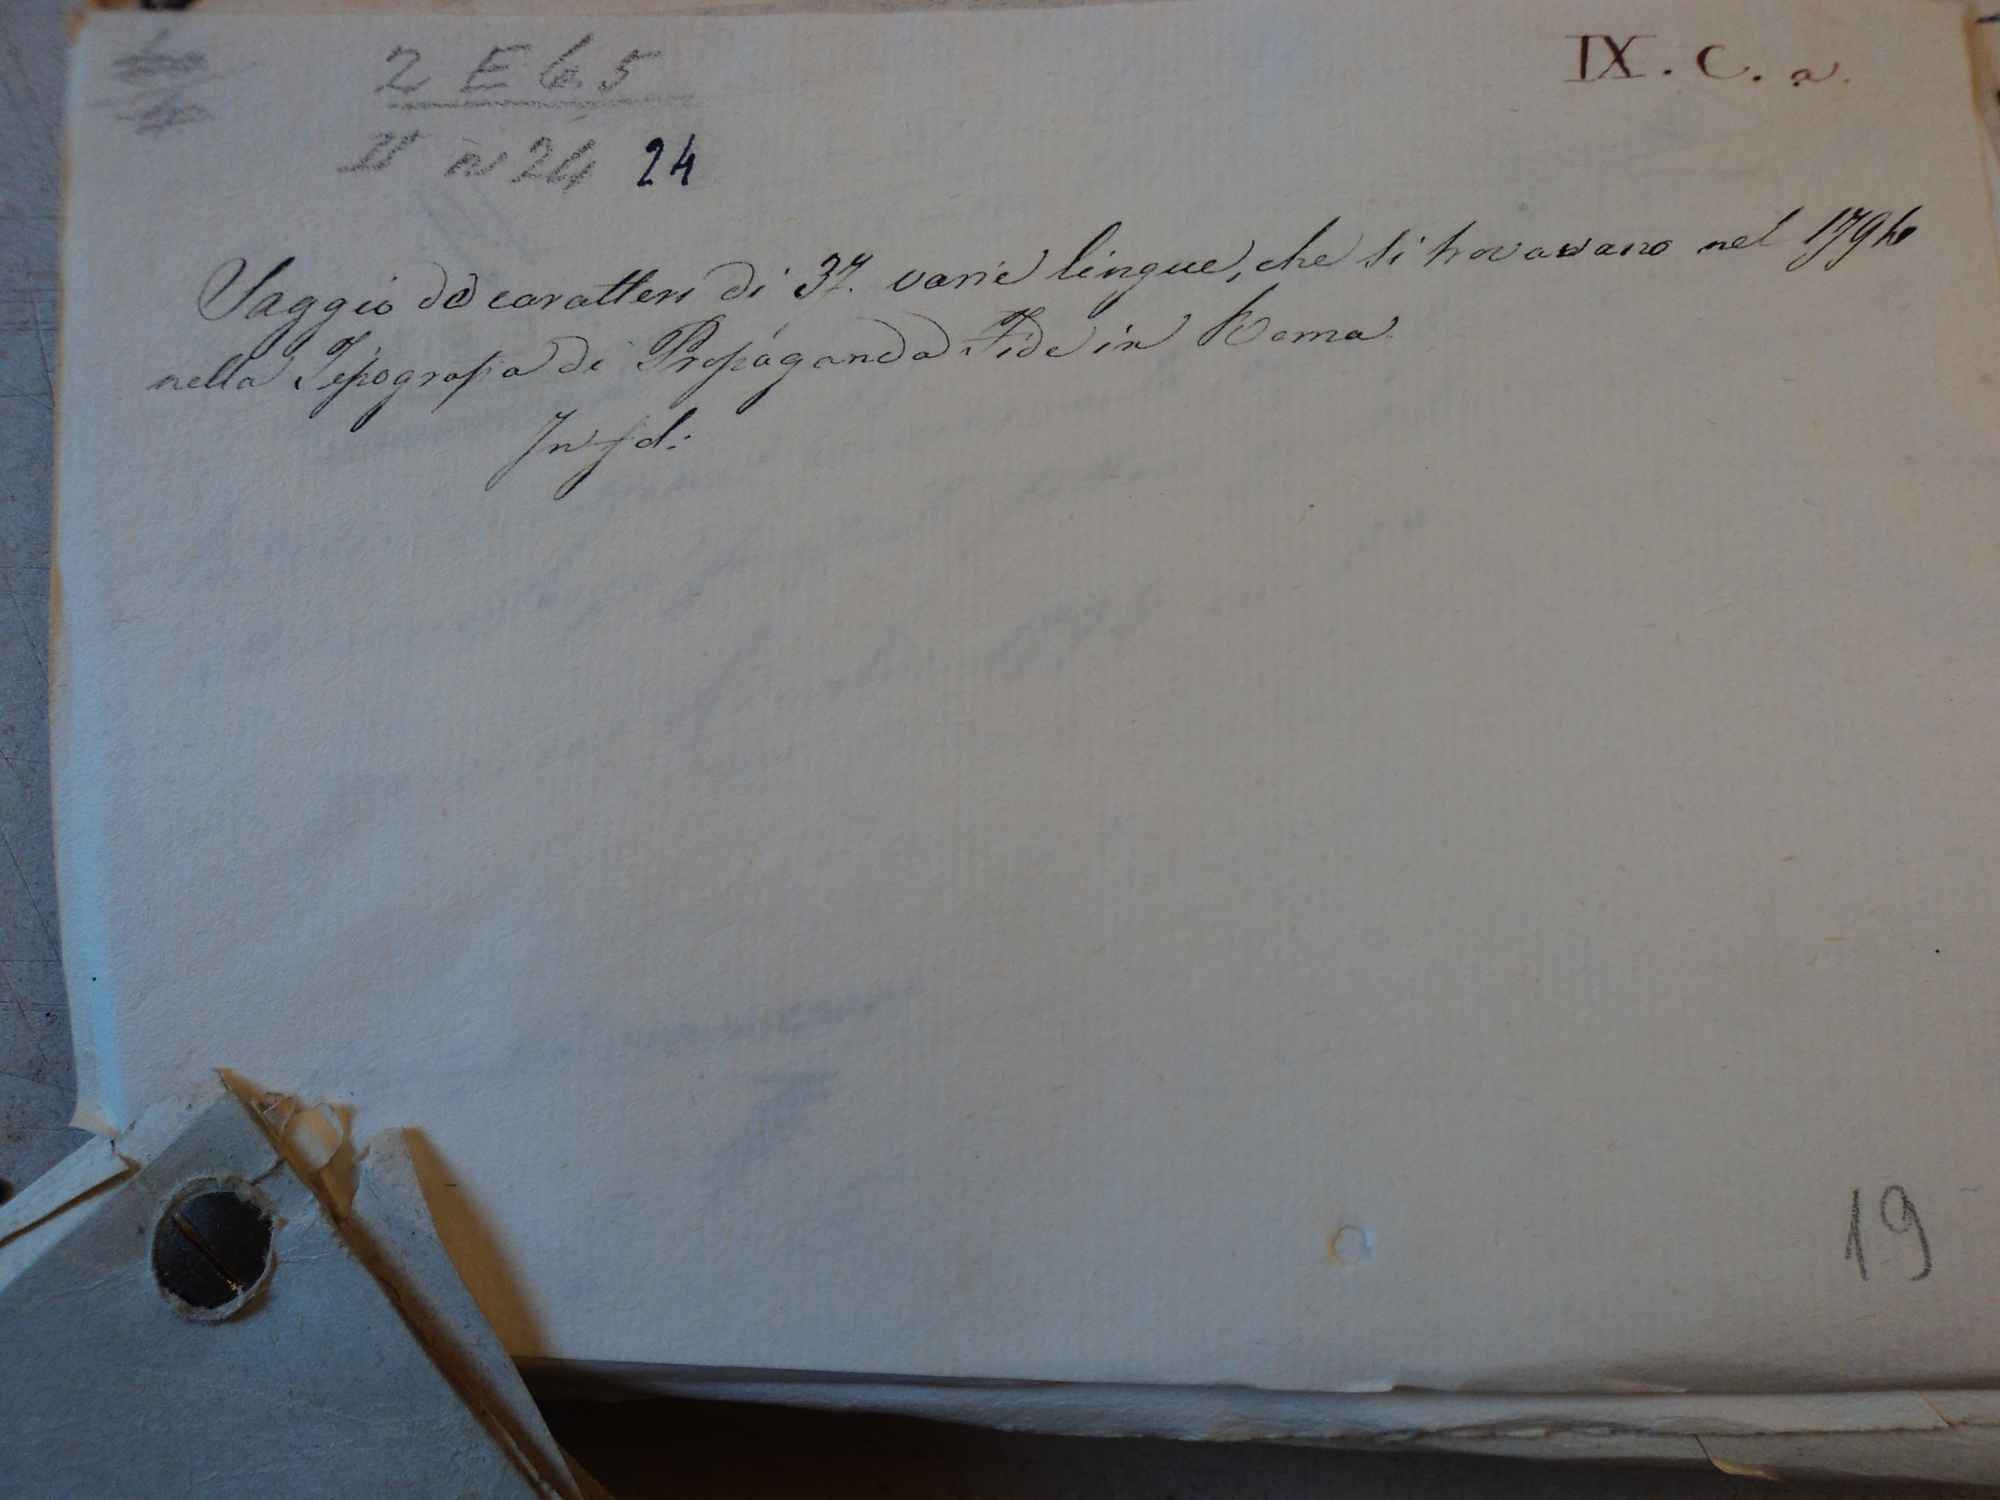 2 E 6. 5
IX. C. a.
n 24 24
Saggio dei caratteri di 37. varie lingue, che si trovavano nel 1796
nella Tipografia di Propaganda Fide in Roma
In fol:
19